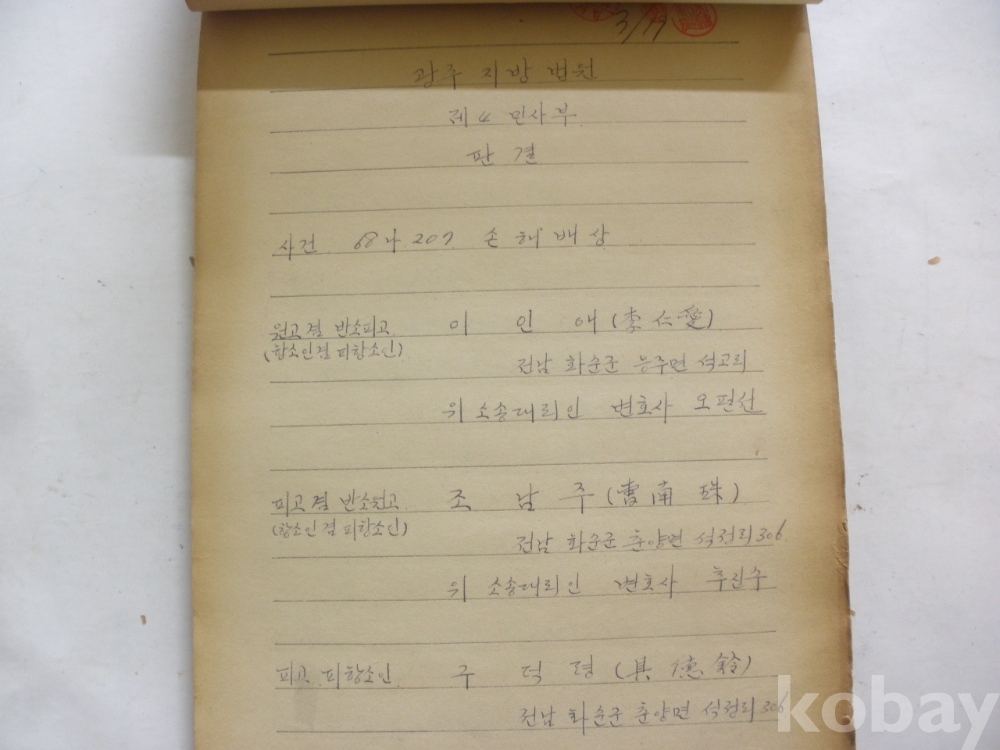 3/19
광주 지방 법원
제 4 민사부
판 결
사건 68나 207 손해배상
원고겸 반소피고 이 인 애 (李仁愛)
(항소인겸 피항소인)
전남 화순군 능주면 석고리
위 소송대리인 변호사 오필선
피고겸 반소원고 조 남 주 (曺南珠)
(항소인겸 피항소인)
전남 화순군 춘양면 석정리 306
위 소송대리인 변호사
피고 피항소인 구 덕 령 (具德鈴)
전남 화순군 춘양면 석정리 306
kobay